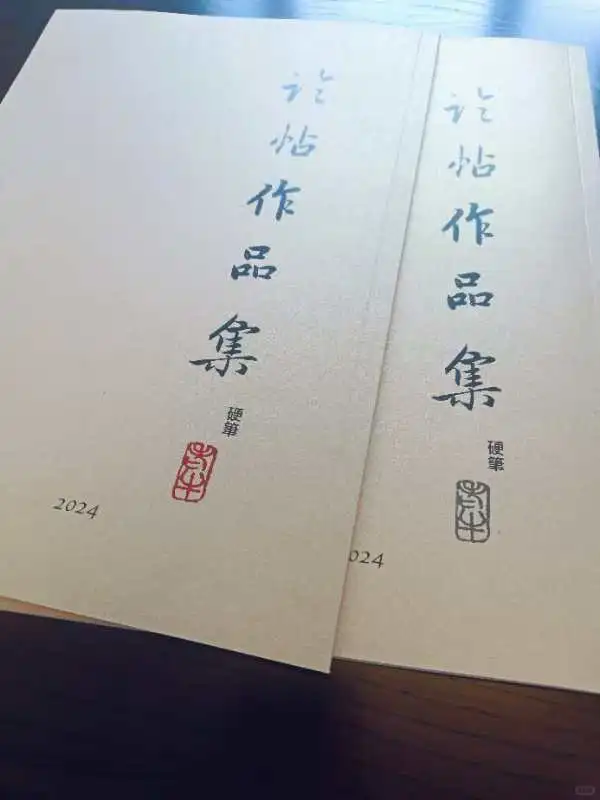 臨帖作品集
硬筆
2024
臨帖作品集
硬筆
024